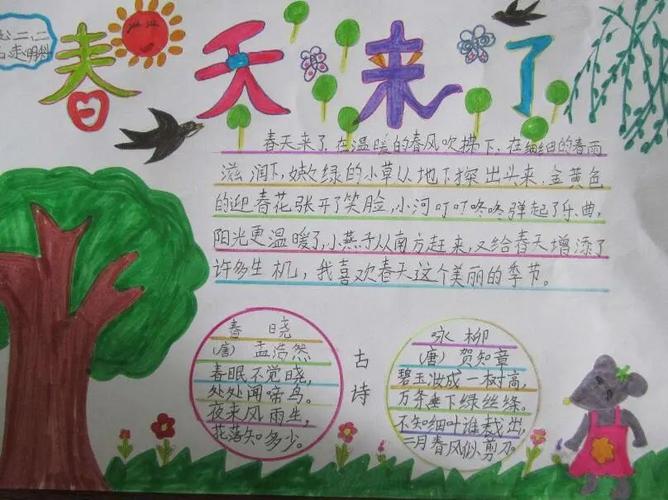 二、二
春天来了
春天来了,在温暖的春风吹拂下,在细细的春雨
滋润下,嫩绿的小草从地下探出头来,金黄色
的迎春花张开了笑脸,小河叮叮咚咚弹起了乐曲,
阳光更温暖了,小燕子从南方赶来,又给春天增添了
许多生机,我喜欢春天这个美丽的季节。
春晓
(唐)孟浩然
春眠不觉晓,
处处闻啼鸟。
夜来风雨生,
花落知多少。
古诗
咏柳
(唐)贺知章
碧玉妆成一树高,
万条垂下绿丝绦。
不知细叶谁裁出,
二月春风似剪刀。